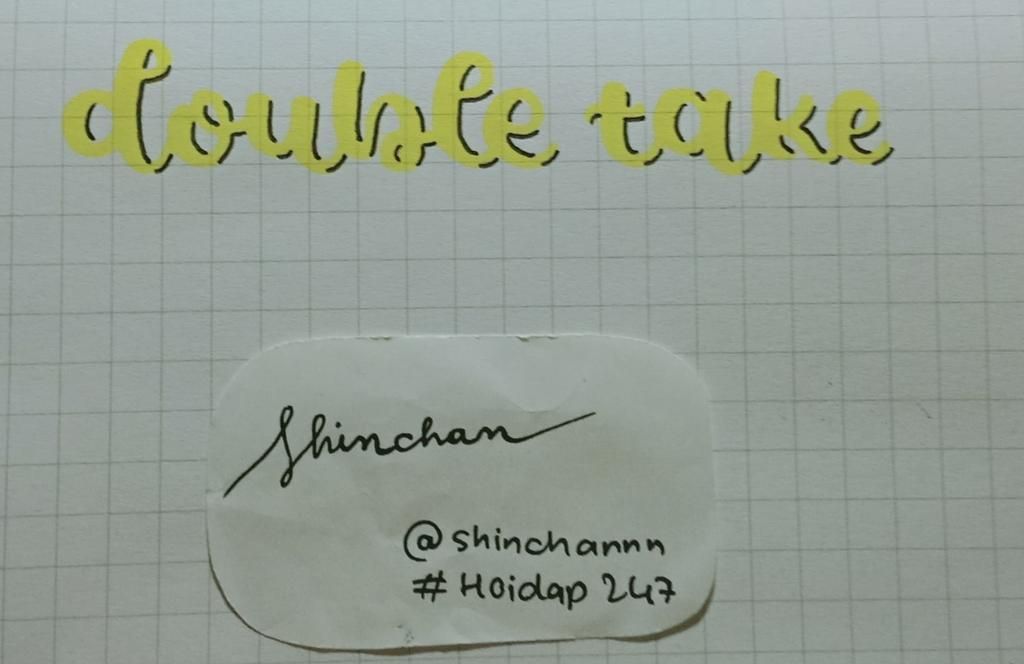 double take
Shinchan
@shinchannn
#Hoidap 247